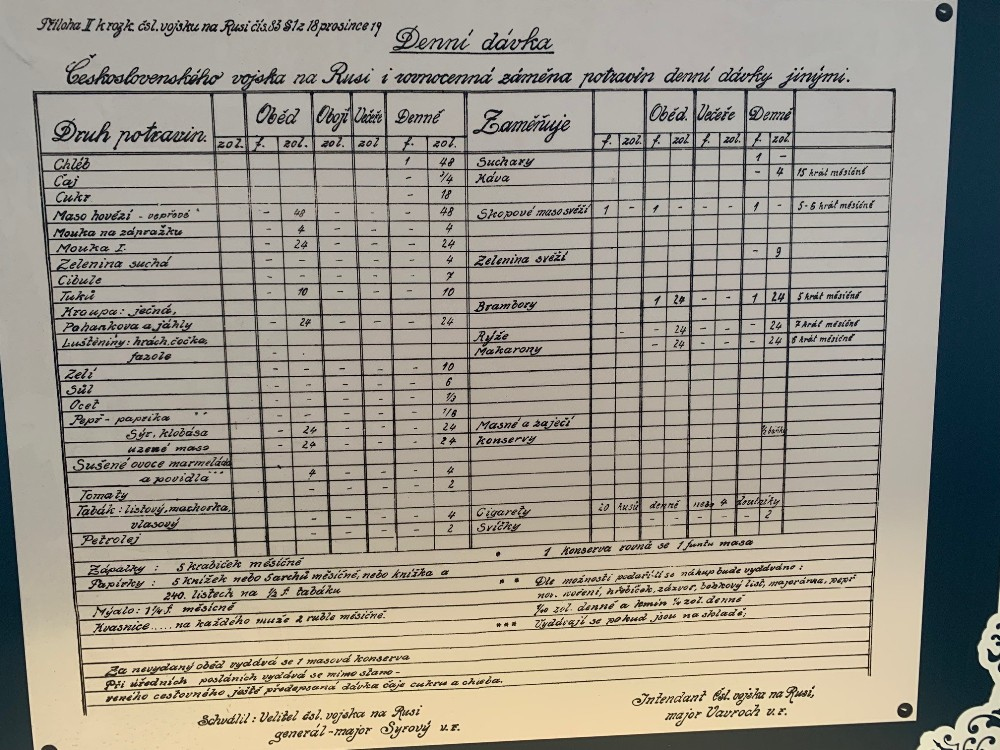 Příloha II k rozk. čsl. vojsku na Rusi čís. 83 § 1 z 18 prosince 19
Denní dávka
Československého vojska na Rusi i rovnocenná záměna potravin denní dávky jinými.
Druh potravin. Oběd Obojí Večeře Denně Zaměňuje Oběd. Večeře Denně
zol. f. zol. zol. zol f. zol. f. zol. f. zol f. zol. f. zol.
Chléb 1 48 Suchary 1 -
Čaj - 3/4 Káva - 4 15 krát měsíčně
Cukr - 18
Maso hovězí - vepřové * - 48 - - - 48 Skopové maso svěží 1 - 1 - 1 - 5-6 krát měsíčně
Mouka na zápražku - 4 - - - 4
Mouka I. - 24 - - - 24
Zelenina suchá - - - - - 4 Zelenina svěží - 9
Cibule - - - - - 7
Tuků - 10 - - - 10
Kroupa: ječná, Brambory 1 24 - - 1 24 5 krát měsíčně
Pohankova a jáhly - 24 - - - 24
Luštěniny: hrách, čočka, Rýže - - 24 - - - 24 7 krát měsíčně
fazole - - - - - Makarony - - 24 - - - 24 6 krát měsíčně
Zelí - - - - - 10
Sůl - - - - - 6
Ocet - - - - -
Pepř - paprika ** - - - - - 1/8
Sýr, klobása - 24 - - - 24 Masné a zaječí
uzené maso - 24 - - - 24 konservy
Sušené ovoce marmeláda
a povidla *** - 4 - - - 4
Tomaty - - - - 2
Tabák: listový, machorka,
vlasový - - - 4 Cigarety 20 kusů denně nebo 4 doutníky
Petrolej - - - 2 Svíčky - - - - - 2
Zápalky: 5 krabiček měsíčně
Papírky: 5 knížek nebo 5 archů měsíčně, nebo knížka a
240. listech na 1/2 f. tabáku
Mýdlo: 1 1/4 f. měsíčně
Kvasnice..... na každého muže 2 ruble měsíčně.
* 1 Konserva rovná se 1 funtu masa
** Dle možnosti podaří-li se nákup bude vydáváno:
nov. koření, hřebíček, zázvor, bobkový list, majoránka, pepř
1/10 zol. denně a kmín 1/4 zol. denně
*** Vydávají se pokud jsou na skladě;
Za nevydaný oběd vydává se 1 masová konserva
Při úředních posláních vydává se mimo stano-
veného cestovného, ještě předepsaná dávka čaje cukru a chleba.
Schválil: Velitel čsl. vojska na Rusi
generál-major Syrový v.r.
Intendant čsl. vojska na Rusi,
major Vavroch v.r.